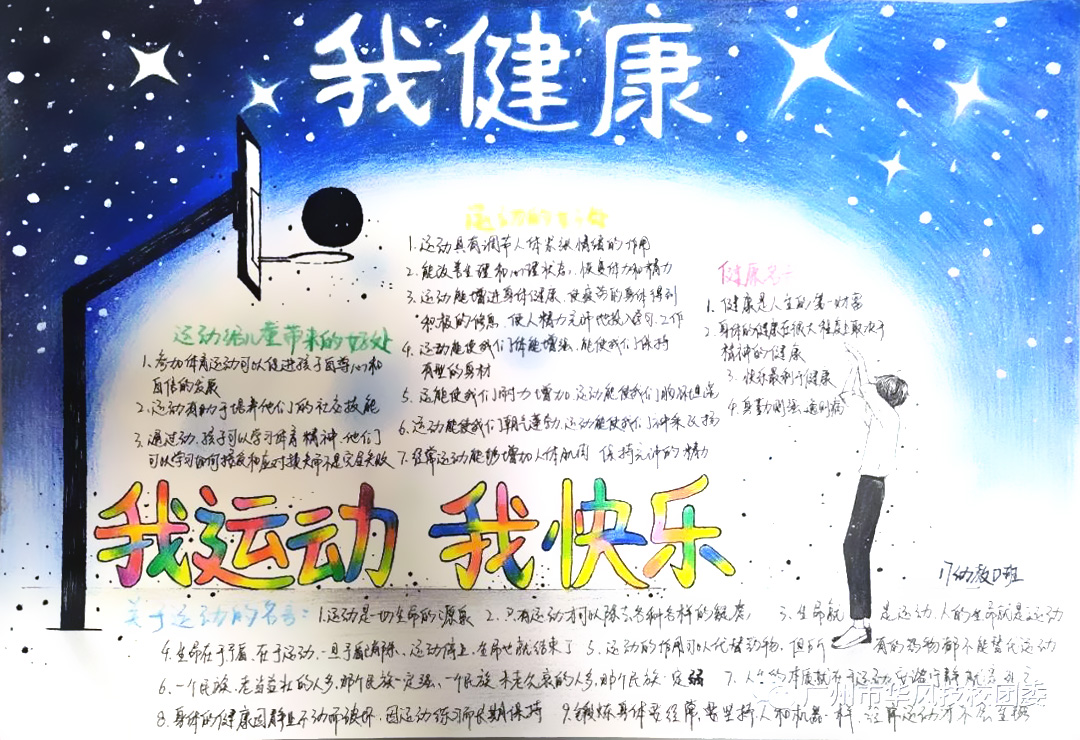 我健康
运动的好处
1.运动具有调节人体紧张情绪的作用
2.能改善生理和心理状态,恢复体力和精力
3.运动能增进身体健康,使疲劳的身体得到
积极的休息,使人精力充沛地投入学习、工作
4.运动能使我们体能增强,能使我们保持
有型的身材
5.还能使我们耐力增加。运动能使我们
6.运动能使我们朝气蓬勃,运动能使我们神采飞扬
7.经常运动能够增加人体肌肉 保持充沛的精力
健康名言
1.健康是人生的第一财富
2.身体的健康在很大程度上取决于
精神的健康
3.快乐最利于健康
4.身勤则强,逸则病
运动给儿童带来的好处
1.参加体育运动可以促进孩子自尊心和
自信的发展
2.运动有助于培养他们的社交技能
3.通过动,孩子可以学习体育精神,他们
可以学习如何接受和应对损失而不是完全失败
我运动 我快乐
17幼教D班
关于运动的名言:1.运动是一切生命的源泉 2.只有运动才可以除去各种各样的疑虑 3.生命就是运动,人的生命就是运动
4.生命在于矛盾,在于运动,一旦矛盾消除、运动停止,生命也就结束了 5.运动的作用可以代替药物,但所有的药物都不能替代运动
6.一个民族,老当益壮的人多,那个民族一定强,一个民族 未老先衰的人多,那个民族一定弱 7.人生的本质就在于运动,安谧宁静就是死亡
8.身体的健康因静止不动而破坏,因运动练习而长期保持 9.锻炼身体要经常,要坚持,人和机器一样,经常运动才不会生锈
广州市华风技校团委